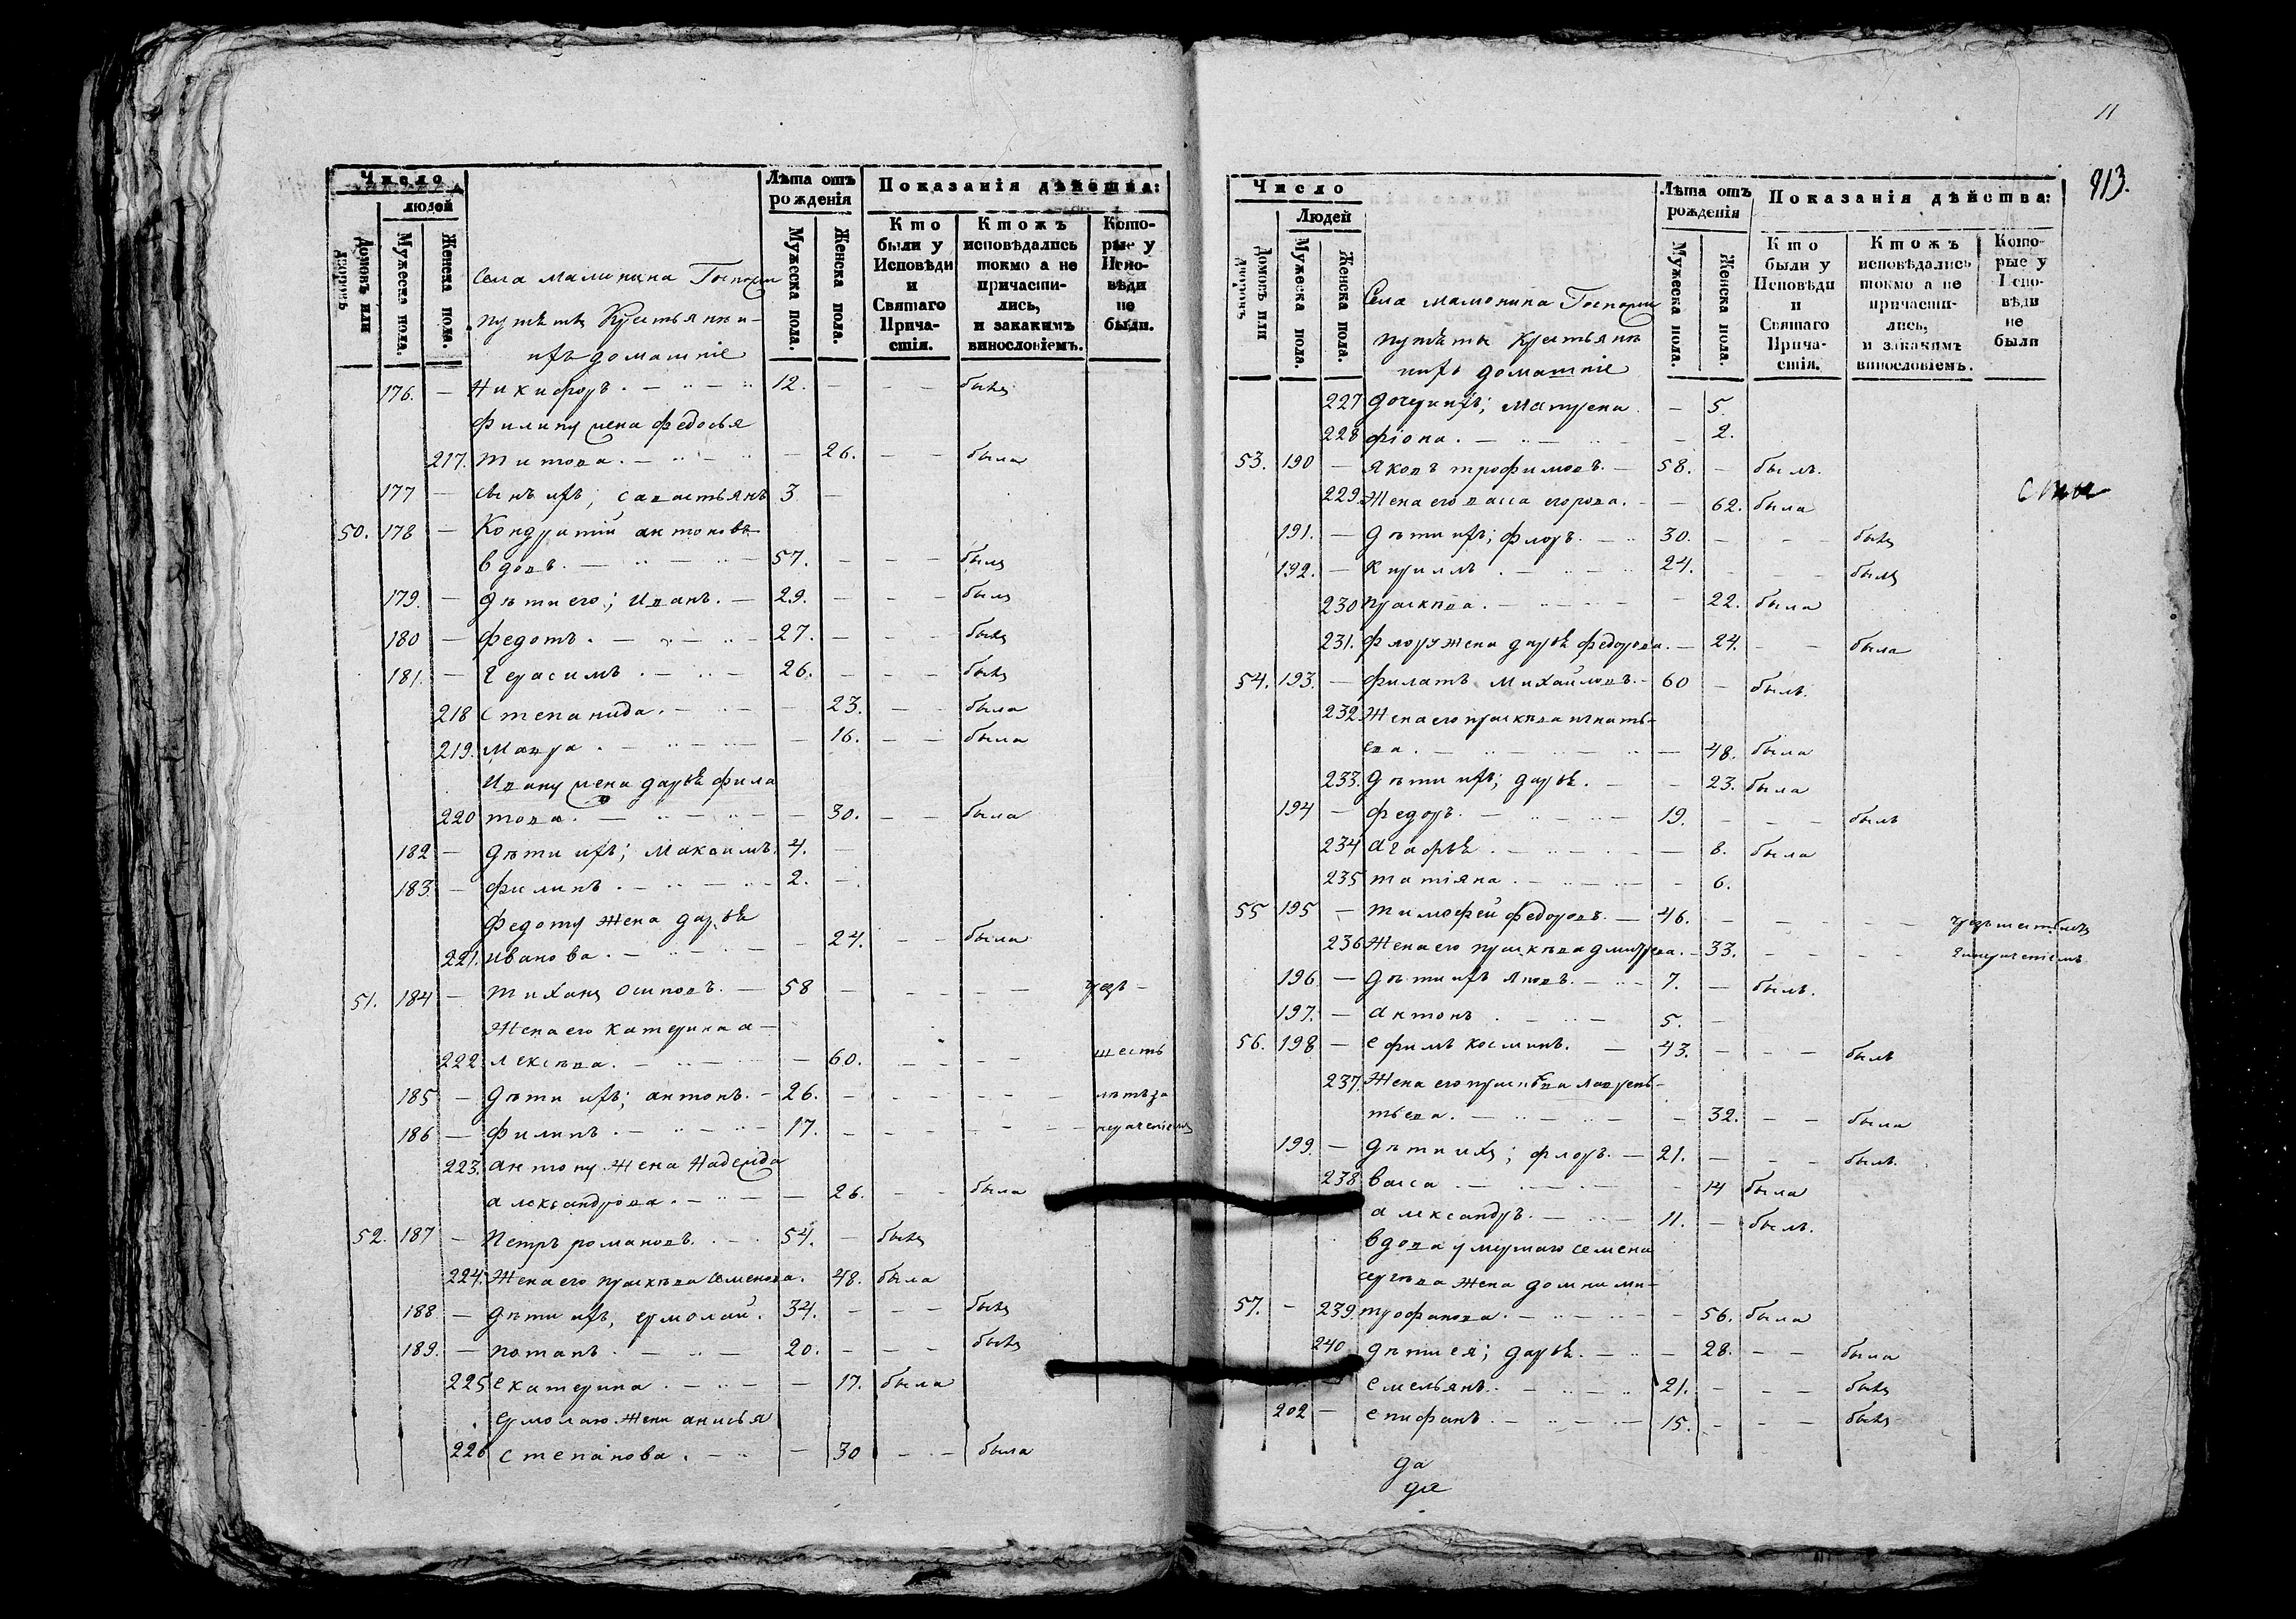 Число
людей
Домовъ или дворовъ
Мужеска пола.
Женска пола.
Лѣта отъ рожденія
Мужеска пола.
Женска пола.
Показанія дѣйства:
Кто были у Исповѣди и Святаго Причастія.
Ктожъ исповѣдались токмо а не причастились, и закакимъ винословіемъ.
Которые у Исповѣди не были.
Села
Крестьяне и
ихъ домашніе
176. — Никифоръ. — 12. — — — былъ
Филипу жена федосья
217. титова. — — 26. — — была
177 — сынъ ихъ; савастьянъ 3 —
50. 178 — Кондратій антоновъ
вдовъ. — 57. — — — былъ
179. — дѣти его; Иванъ. — 29. — — — былъ
180 — федотъ. — 27. — — — былъ
181. — Герасимъ. — 26. — — — былъ
218 степанида. — — 23. — — была
219. Мавра. — — 16. — — была
Ивану жена дарья фила
220 това. — — 30. — — была
182 — дѣти ихъ; Максимъ. 4. —
183. — филипъ. — 2. —
федоту жена дарья
221. иванова. — — 24. — — была
51. 184 — тиханъ осиповъ. — 58 — — — — — чрезъ —
Жена его катерина а—
222. лексѣева. — — 60. — — — шесть
185 — дѣти ихъ; антонъ. — 26. — — — — — лѣтъ за
186 — филипъ. — 17. — — — — — нераченіемъ
223. антону жена Надежда
александрова. — — 26. — — была
52. 187 — Петръ романовъ. — 54. — былъ
224. Жена его прасковья семенова. 48. была
188. — дѣти ихъ, ермолай. 34. — — — былъ
189. — потапъ. — 20. — — — былъ
225 екатерина. — — 17. была
ермолаю жена анисья
226 степанова. — — 30 — — была
11
913.
Число
Людей
Домовъ или дворовъ
Мужеска пола
Женска пола.
Лѣта отъ рожденія
Мужеска пола.
Женска пола.
Показанія дѣйства:
Кто были у Исповѣди и Святаго Причастія.
Ктожъ исповѣдались токмо а не причастились, и закакимъ винословіемъ.
Которые у Исповѣди не были
Села
Крестьяне
ихъ домашніе
227 дочери ихъ; Матрена. — 5.
228 фіона. — — 2.
53. 190 — яковъ трофимовъ. — 58. — былъ.
229. Жена его васса егорова. — — 62. была
191. — дѣти ихъ; флоръ. — 30. — — — былъ
192. — кирилъ. — 24. — — — былъ
230 — — 22. была
231. флору жена дарья федорова. — 24. — — была
54. 193. — филатъ Михайловъ. — 60 — былъ.
232. Жена его прасковья игнать—
ева. — — 48. была
233. дѣти ихъ; дарья. — — 23. была
194 — федоръ. — 19. — — — былъ
234 агафья. — — 8. была
235 татіяна. — — 6.
55 195 — тимофей федоровъ. — 46. — — — — —
236 Жена его прасковья дмитрева. — 33. — — — —
196. — дѣти ихъ яковъ. — 7. — былъ.
197. — антонъ. — 5. —
56. 198 — ефимъ косминъ. — 43. — — — былъ
237. Жена его прасковья лаврень—
тьева. — — 32. — — была
199. — дѣти ихъ; флоръ. — 21. — — — былъ.
238 васса. — — 14 была
александръ. — 11. — былъ.
вдова умершаго семена
сергѣева жена домна ми—
57. — 239. трофанова. — — 56. была
240 дѣти ея; дарья. — — 28. — — была
емельянъ. — 21. — — — былъ
202 — епифанъ. — 15. — — — былъ